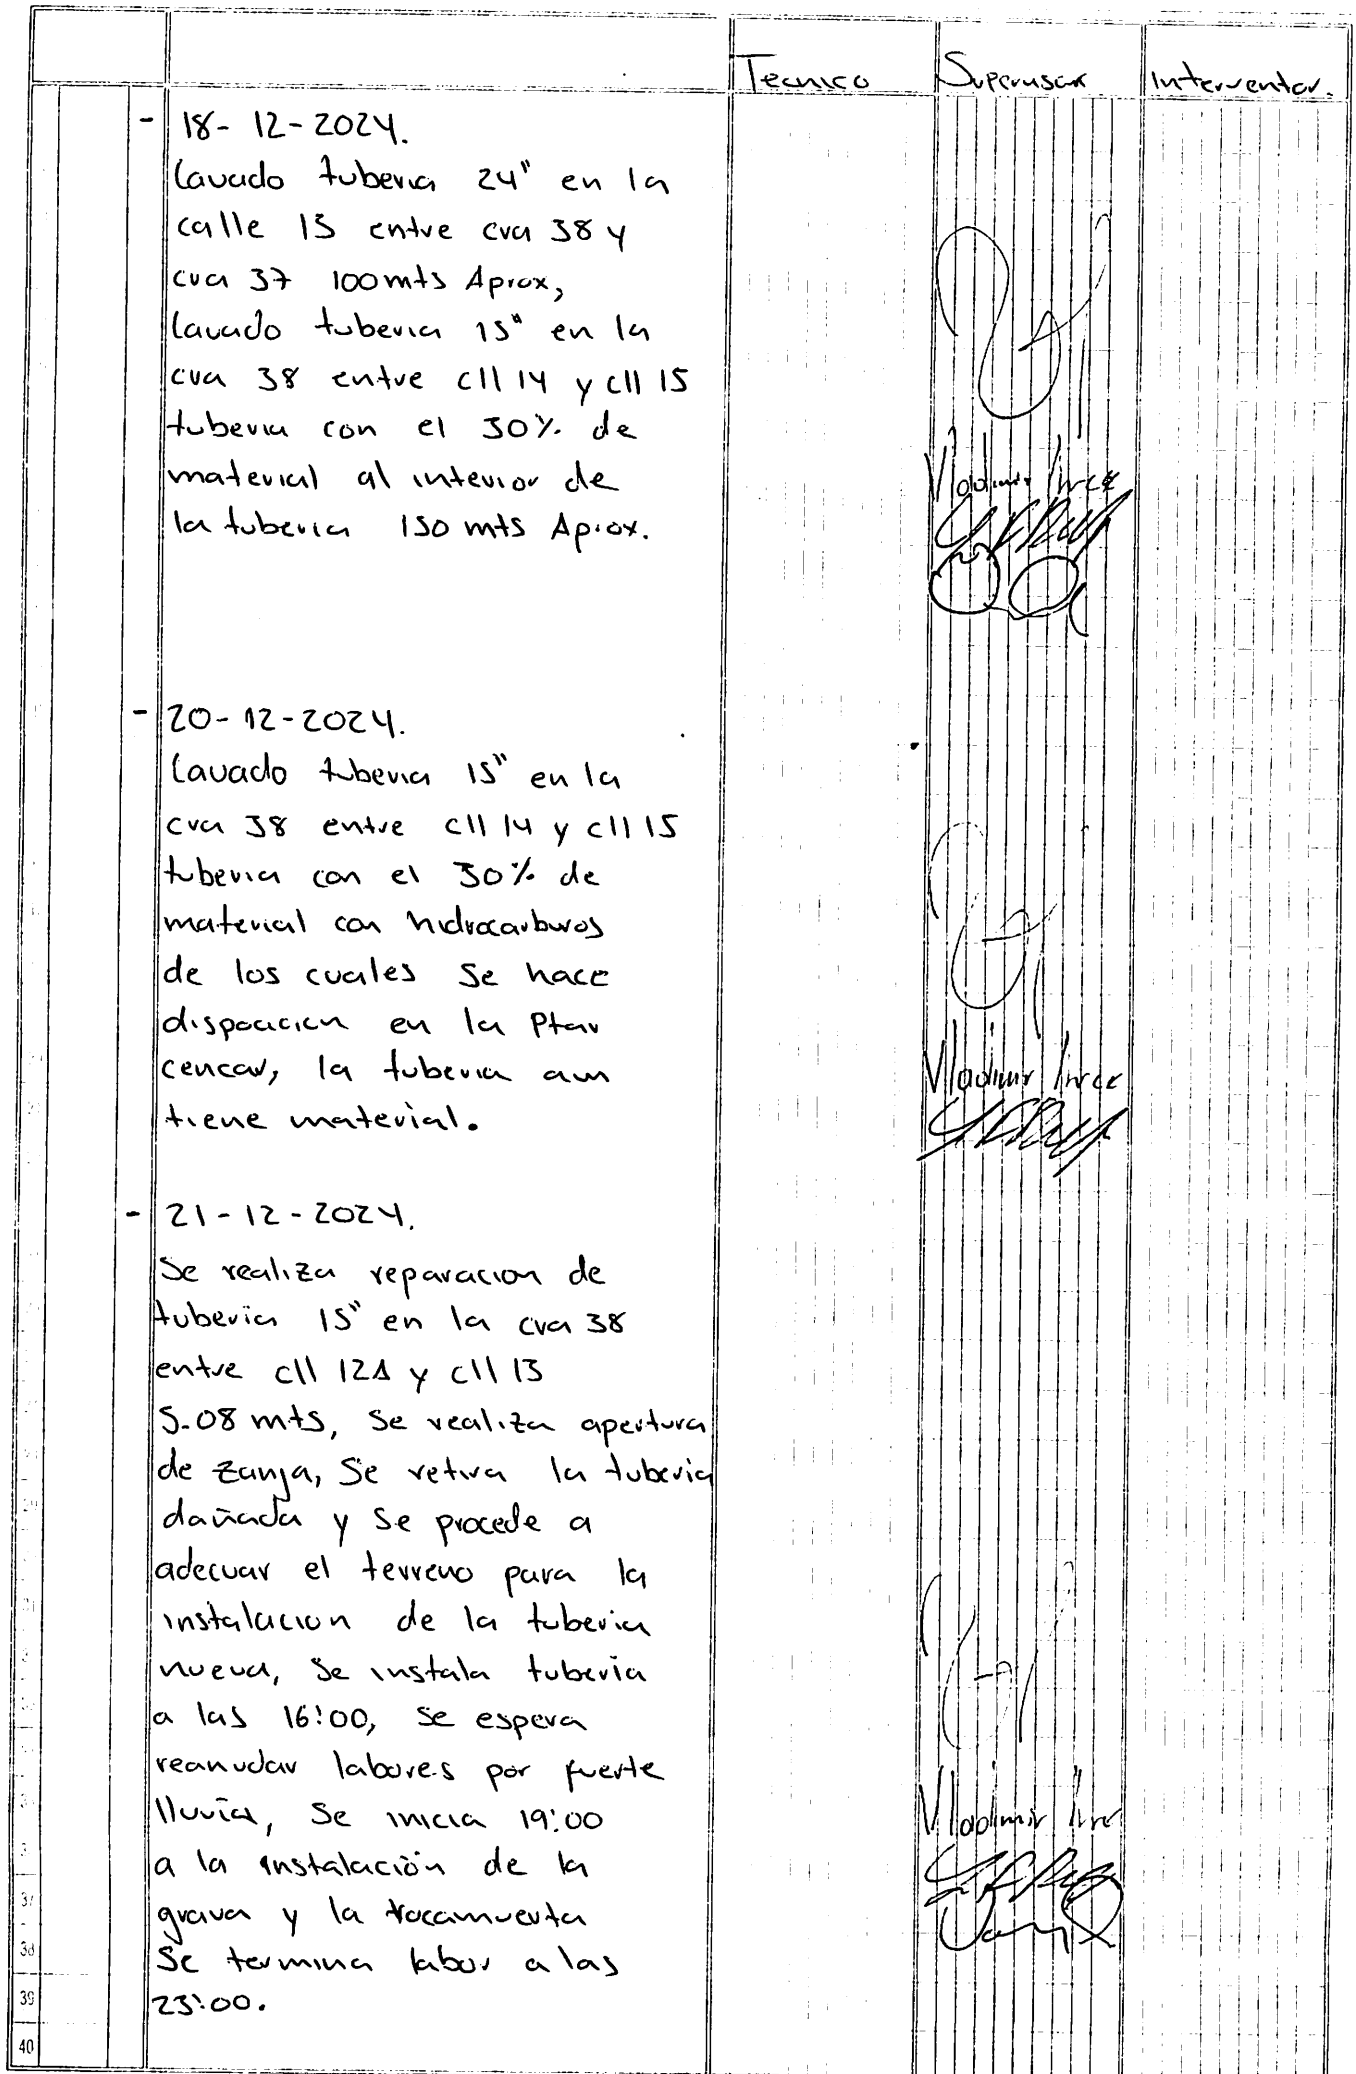 Tecnico Supervisor Interventor.
- 18-12-2024.
Lavado tuberia 24" en la
calle 15 entre cra 38 y
cra 37 100 mts Aprox,
lavado tuberia 15" en la
cra 38 entre cll 14 y cll 15
tuberia con el 30% de
material al interior de
la tuberia 150 mts Aprox.
Vladimir
- 20-12-2024.
Lavado tuberia 15" en la
cra 38 entre cll 14 y cll 15
tuberia con el 30% de
material con hidrocarburos
de los cuales se hace
disposicion en la Ptar
cencar, la tuberia aun
tiene material.
Vladimir
- 21-12-2024.
Se realiza reparacion de
tuberia 15" en la cra 38
entre cll 12A y cll 13
5.08 mts, se realiza apertura
de zanja, se retira la tuberia
dañada y se procede a
adecuar el terreno para la
instalacion de la tuberia
nueva, se instala tuberia
a las 16:00, se espera
reanudar labores por fuerte
lluvia, se inicia 19:00
a la instalación de la
grava y la rocamuerta
Se termina labor a las
23:00.
Vladimir
37
38
39
40